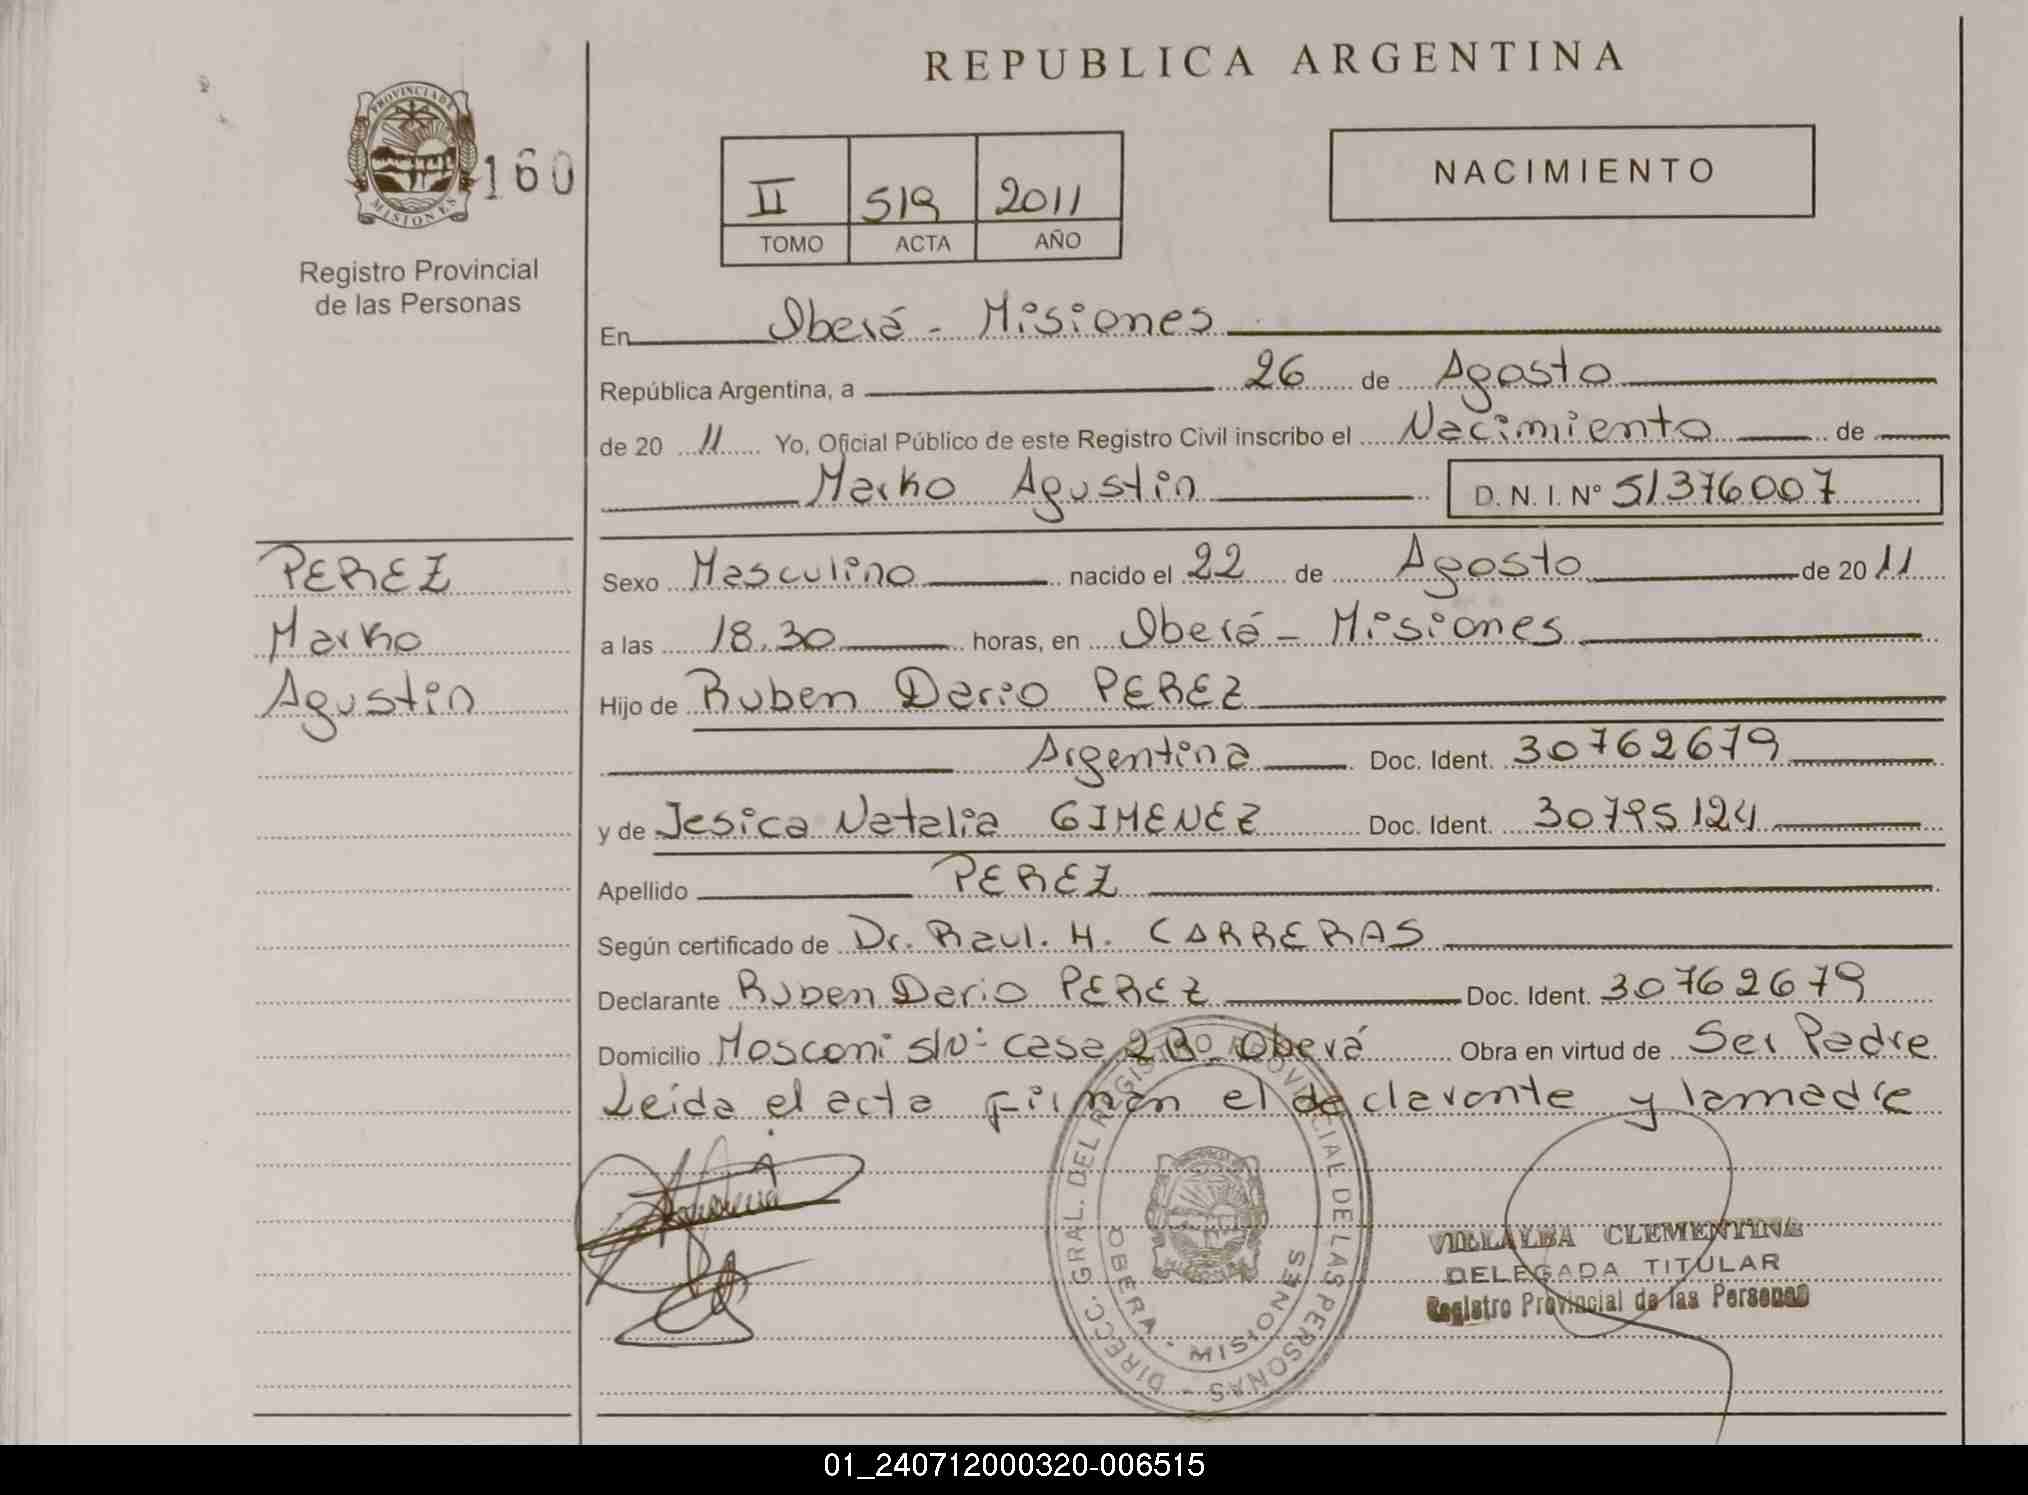 REPUBLICA ARGENTINA
PROVINCIA DE
MISIONES
160
Registro Provincial
de las Personas
II 519 2011
TOMO ACTA AÑO
NACIMIENTO
En Oberá - Misiones
República Argentina, a 26 de Agosto
de 20 11 Yo, Oficial Público de este Registro Civil inscribo el Nacimiento de
Marko Agustin D. N. I. Nº 51376007
PEREZ
Marko
Agustin
Sexo Masculino nacido el 22 de Agosto de 20 11
a las 18.30 horas, en Oberá - Misiones
Hijo de Ruben Dario PEREZ
Argentina Doc. Ident. 30762679
y de Jesica Natalia GIMENEZ Doc. Ident. 30795124
Apellido PEREZ
Según certificado de Dr. Raul. H. CARRERAS
Declarante Ruben Dario PEREZ Doc. Ident. 30762679
Domicilio Mosconi s/Nº casa 2B - Oberá Obra en virtud de Ser Padre
Leida el acta firman el declarante y la madre
DIRECC. GRAL. DEL REGISTRO PROVINCIAL DE LAS PERSONAS -
OBERA - MISIONES
VILLALBA CLEMENTINA
DELEGADA TITULAR
Registro Provincial de las Personas
01_240712000320-006515